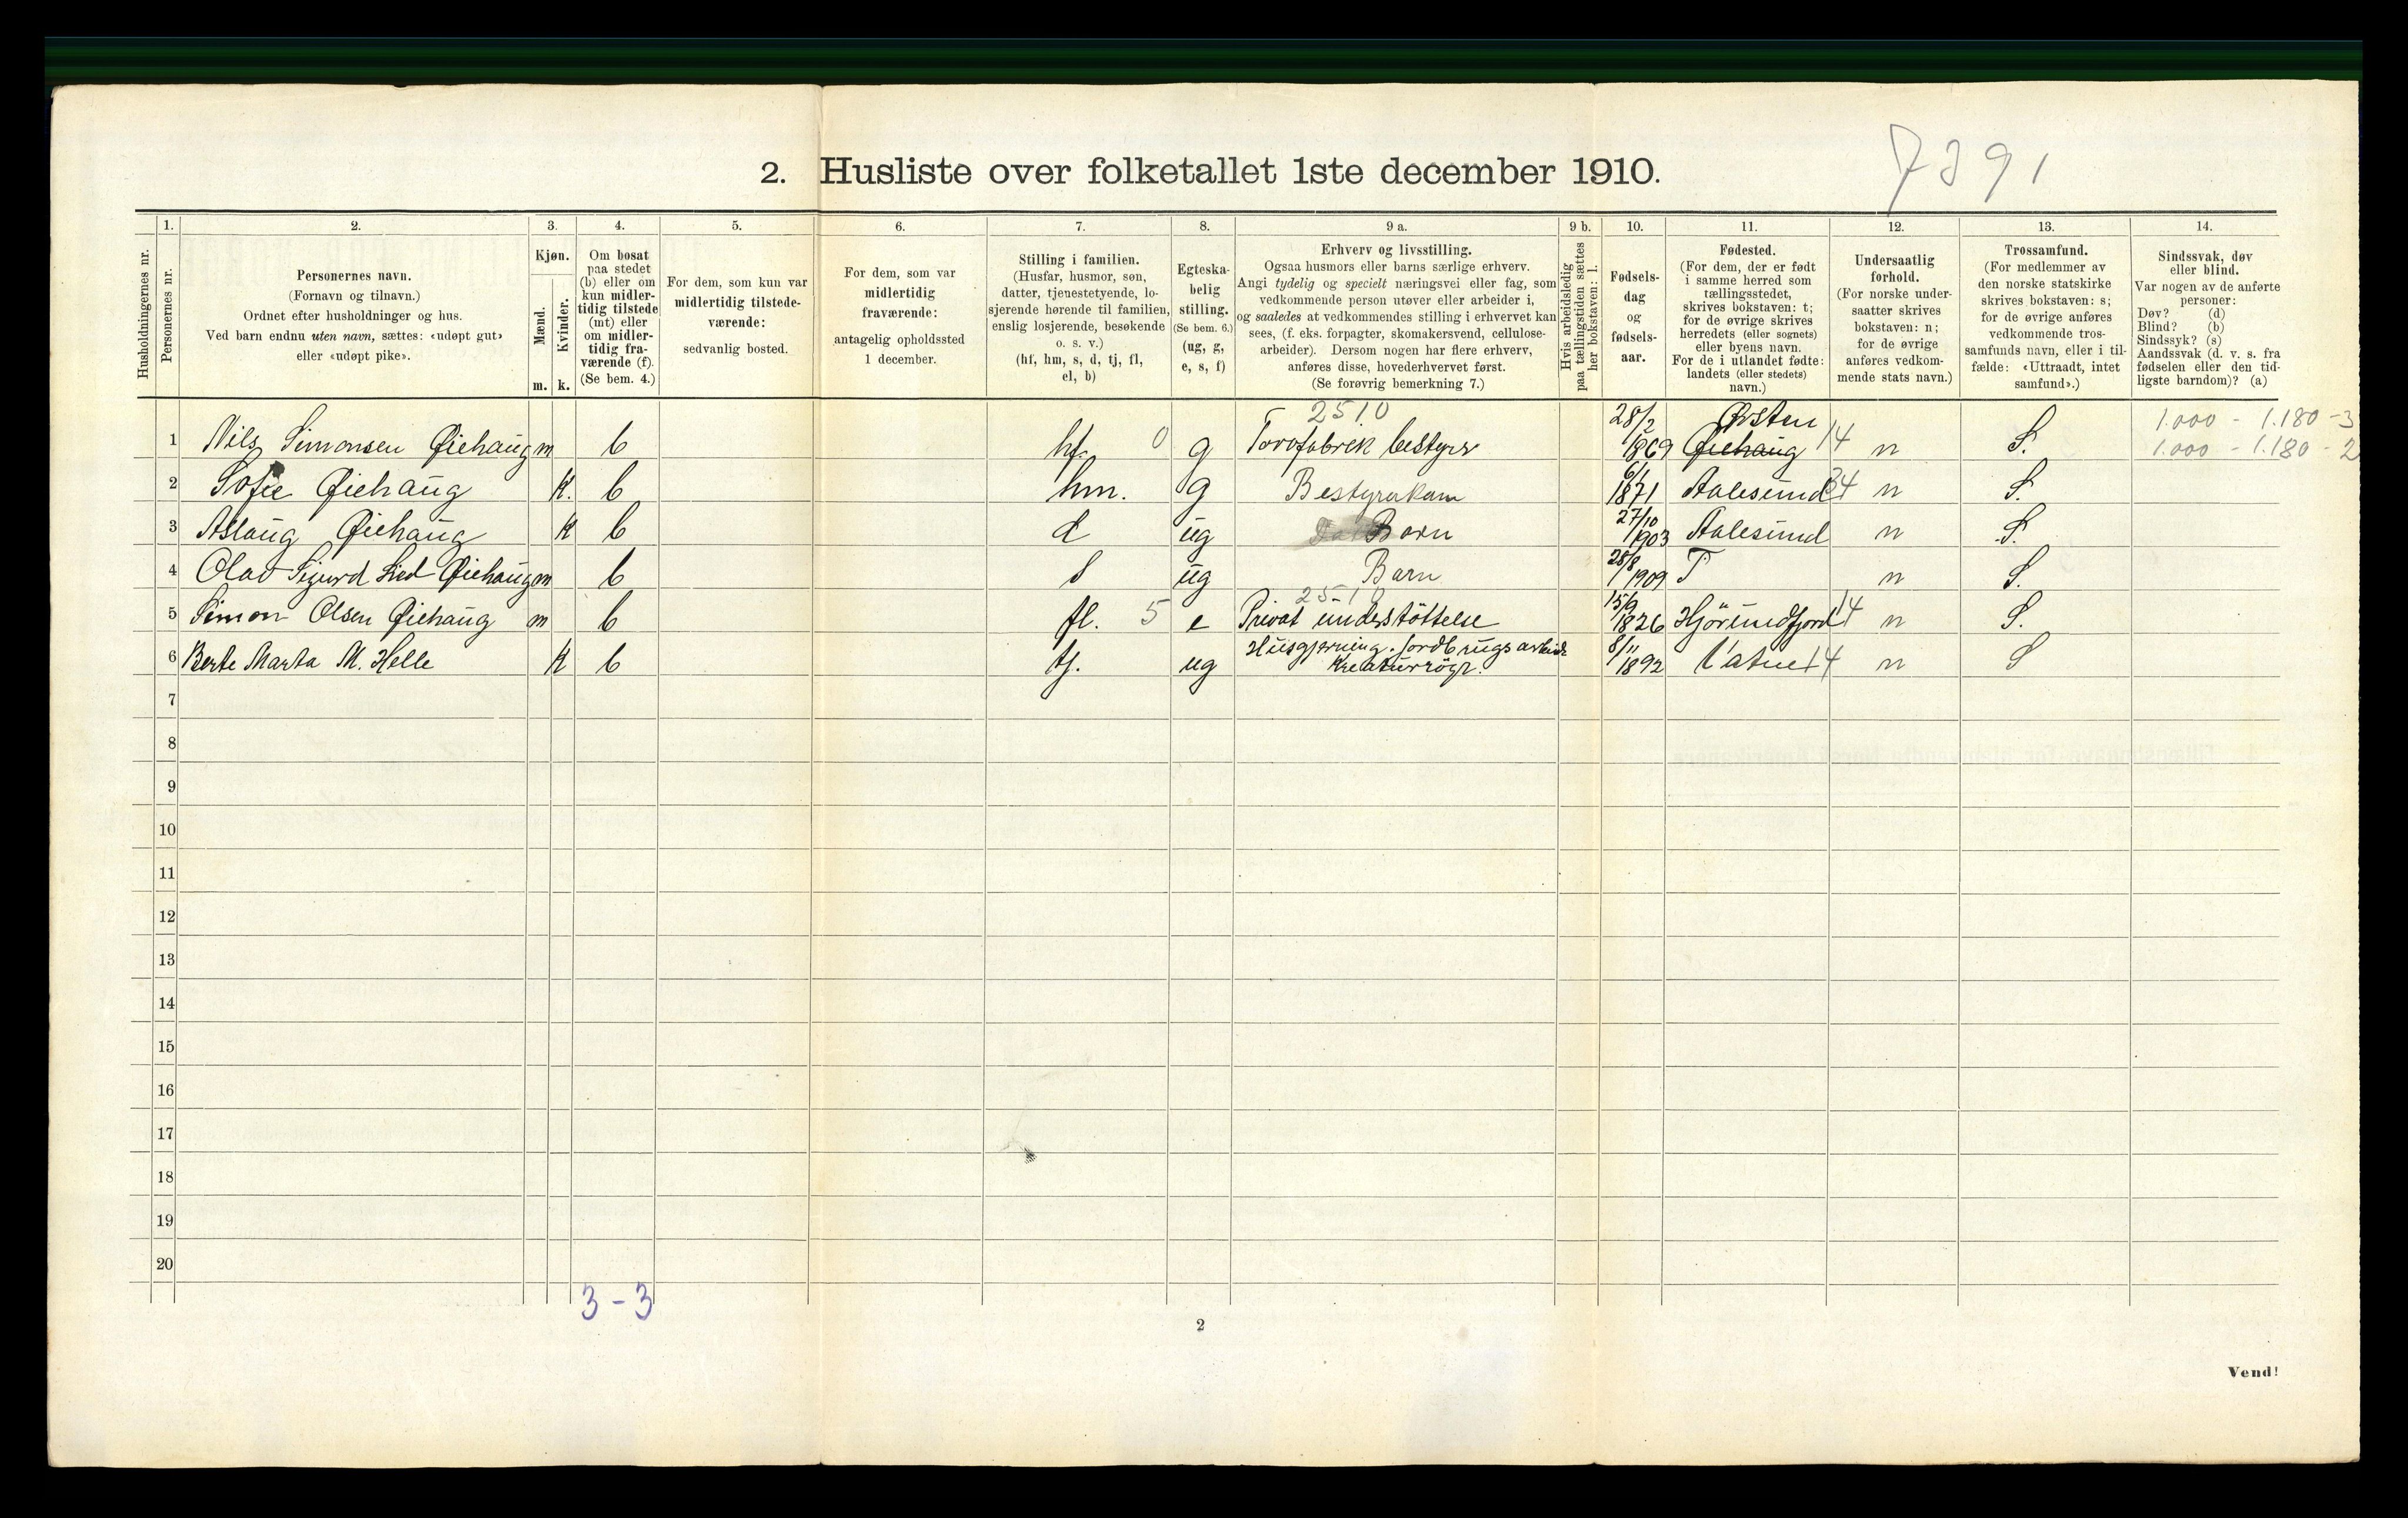 7391
2. Husliste over folketallet 1ste december 1910.
1. 2. 3. 4. 5. 6. 7. 8. 9 a. 9 b. 10. 11. 12. 13. 14.
Husholdningernes nr.
Personernes nr.
Personernes navn.
(Fornavn og tilnavn.)
Ordnet efter husholdninger og hus.
Ved barn endnu uten navn, sættes: «udøpt gut»
eller «udøpt pike».
Kjøn.
Mænd.
Kvinder.
m. k.
Om bosat
paa stedet
(b) eller om
kun midler-
tidig tilstede
(mt) eller
om midler-
tidig fra-
værende (f).
(Se bem. 4.)
For dem, som kun var
midlertidig tilstede-
værende:
sedvanlig bosted.
For dem, som var
midlertidig
fraværende:
antagelig opholdssted
1 december.
Stilling i familien.
(Husfar, husmor, søn,
datter, tjenestetyende, lo-
sjerende hørende til familien,
enslig losjerende, besøkende
o. s. v.)
(hf, hm, s, d, tj, fl,
el, b)
Egteska-
belig
stilling.
(Se bem. 6.)
(ug, g,
e, s, f)
Erhverv og livsstilling.
Ogsaa husmors eller barns særlige erhverv.
Angi tydelig og specielt næringsvei eller fag, som
vedkommende person utøver eller arbeider i,
og saaledes at vedkommendes stilling i erhvervet kan
sees, (f. eks. forpagter, skomakersvend, cellulose-
arbeider). Dersom nogen har flere erhverv,
anføres disse, hovederhvervet først.
(Se forøvrig bemerkning 7.)
Hvis arbeidsledig
paa tællingstiden sættes
her bokstaven: l.
Fødsels-
dag
og
fødsels-
aar.
Fødested.
(For dem, der er født
i samme herred som
tællingsstedet,
skrives bokstaven: t;
for de øvrige skrives
herredets (eller sognets)
eller byens navn.
For de i utlandet fødte:
landets (eller stedets)
navn.)
Undersaatlig
forhold.
(For norske under-
saatter skrives
bokstaven: n;
for de øvrige
anføres vedkom-
mende stats navn.)
Trossamfund.
(For medlemmer av
den norske statskirke
skrives bokstaven: s;
for de øvrige anføres
vedkommende tros-
samfunds navn, eller i til-
fælde: «Uttraadt, intet
samfund».)
Sindssvak, døv
eller blind.
Var nogen av de anførte
personer:
Døv? (d)
Blind? (b)
Sindssyk? (s)
Aandssvak (d. v. s. fra
fødselen eller den tid-
ligste barndom)? (a)
2510 28/2 Ørsten 1.000 - 1.180 - 3
1 Nils Simonsen Øiehaug m b hf. 0 g Tovofabrik bestyrer 1869 Øiehaug 14 n S. 1.000 - 1.180 - 2
2 Sofie Øiehaug K. b hm. g Bestyrerkone 6/1 1871 Aalesund 34 n S.
3 Aslaug Øiehaug K b d ug Barn 27/10 1903 Aalesund n S.
4 Olav Sigurd Lied Øiehaug m b s ug Barn 28/8 1909 T n S.
2510
5 Simon Olsen Øiehaug m b fl. 5 e Privat understöttelse 15/9 1826 Hjörundfjord 14 n S.
6 Berte Marta M. Helle K b tj. ug Husgjerning. Jordbrugsarbeide 8/11 1892 Vatne 14 n S
Kreaturrögt.
7
8
9
10
11
12
13
14
15
16
17
18
19
20
3 - 3
2
Vend!